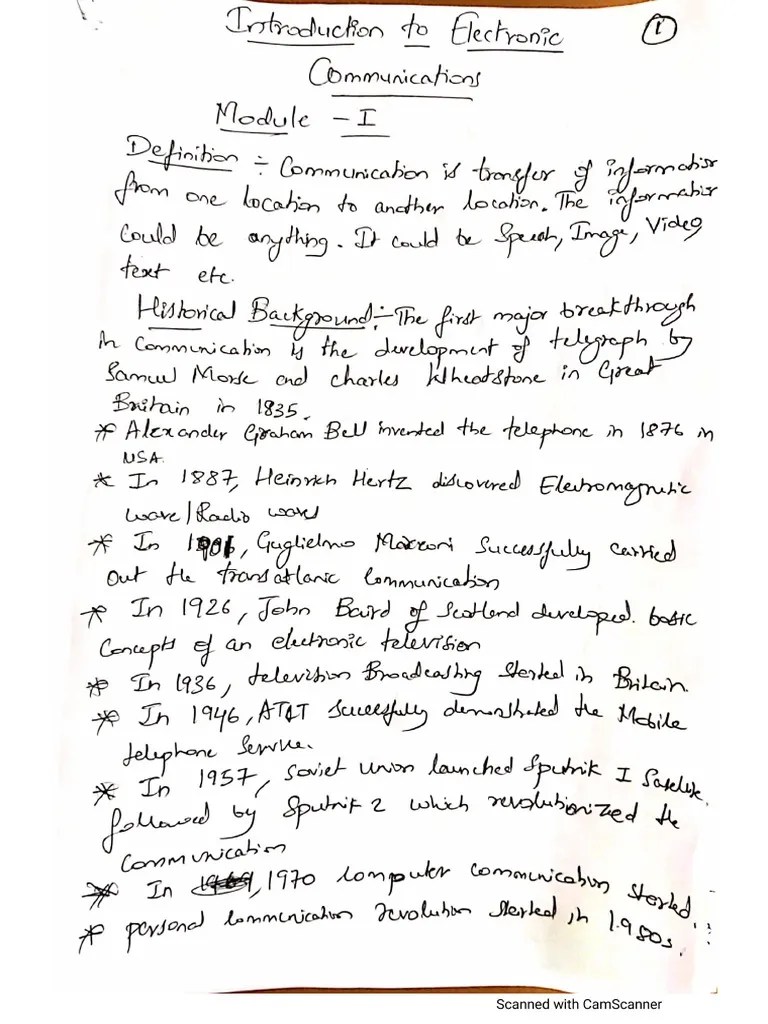 Introduction to Electronic
1
Communications
Module - I
Definition ÷ Communication is transfer of information
from one location to another location. The information
could be anything. It could be Speech, Image, Video,
text etc.
Historical Background:- The first major breakthrough
in communication is the development of telegraph by
Samuel Morse and charles Wheatstone in Great
Britain in 1835.
* Alexander Graham Bell invented the telephone in 1876 in
USA.
* In 1887, Heinrich Hertz discovered Electromagnetic
wave/Radio waves
* In 1901, Guglielmo Marconi successfully carried
out the transatlanic communication
* In 1926, John Baird of Scotland developed. basic
concepts of an electronic television
* In 1936, television Broadcasting started in Britain.
* In 1946, AT&T sucessfully demonstrated the Mobile
telephone Service.
* In 1957, Soviet Union launched Sputnik I Satellite.
followed by Sputnik 2 which revolutionized the
communication
* In 1970 computer communication started.
* personal communication revolution started in 1980s.
Scanned with CamScanner